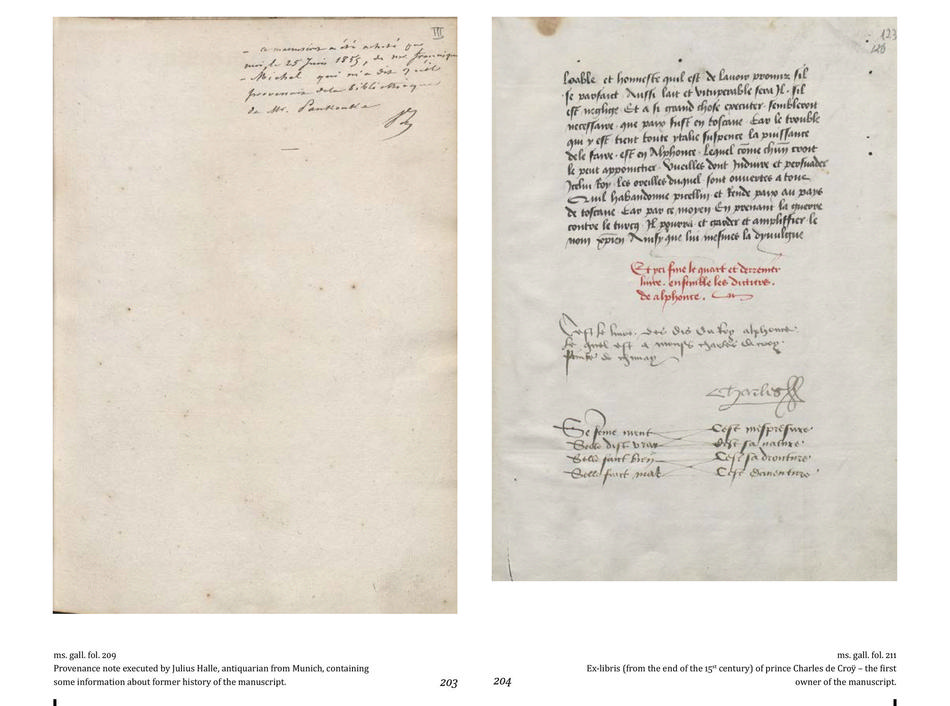 III
– ce manuscrit a été acheté par
moi, le 25 Juin 1885, de mr francisque
– Michel qui m'a dit qu'il
provenait de la bibliothèque
de Mr. Panckoucke
123
loable et honneste quil est de lauoir promis sil
se parfaict Aussi lait et vituperable sera Il sil
est neglige Et a si grand chose executer sembleroit
necessaire que paix fust en toscane Car le trouble
qui y est tient toute ytalie suspence la puissance
de le faire est en Alphonce Lequel come chun croit
le peut appoincter Vueilles dont Induire et persuader
Icelui Roy les oreilles duquel sont ouuertes a tous
Quil habandonne picellin et Rende paix au pays
de toscane Car par ce moyen En prenant la guerre
contre le turcq Il pourra et garder et ampliffier le
nom xpien Ainsy que lui mesmes la dyuulgue
Et cy fine le quart et derrenier
liure ensemble les dictiers
de alphonce.
Cest le liure des dis du Roy alphonce
Le quel est a monsr charles de croy
de chimay
Charles
Se feme ment Cest
Selle dist vray Cest sa nature
Selle faict bien Cest sa
Selle faict mal Cest
ms. gall. fol. 209
Provenance note executed by Julius Halle, antiquarian from Munich, containing
some information about former history of the manuscript.
203
204
ms. gall. fol. 211
Ex-libris (from the end of the 15st century) of prince Charles de Croÿ – the first
owner of the manuscript.